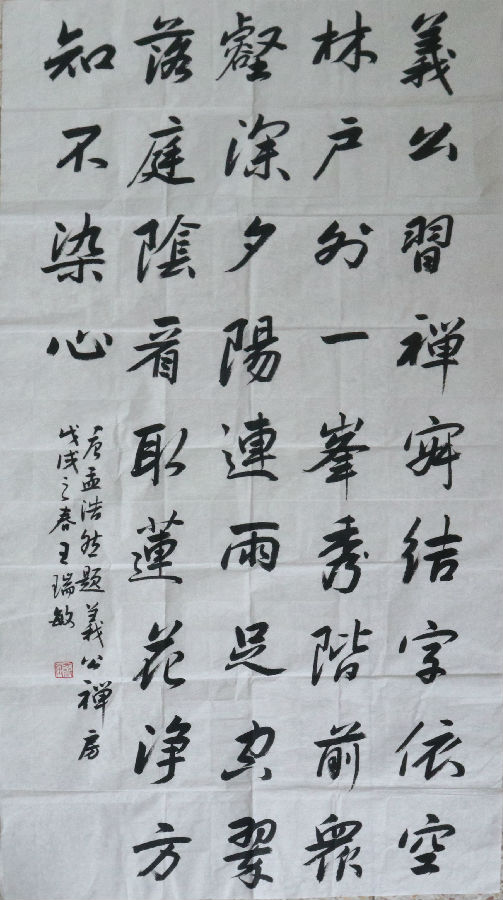 義公習禪寂結宇依空
林戶外一峯秀階前眾
壑深夕陽連雨足空翠
落庭陰看取蓮花淨方
知不染心
唐孟浩然題義公禪房
戊戌之春王瑞敏